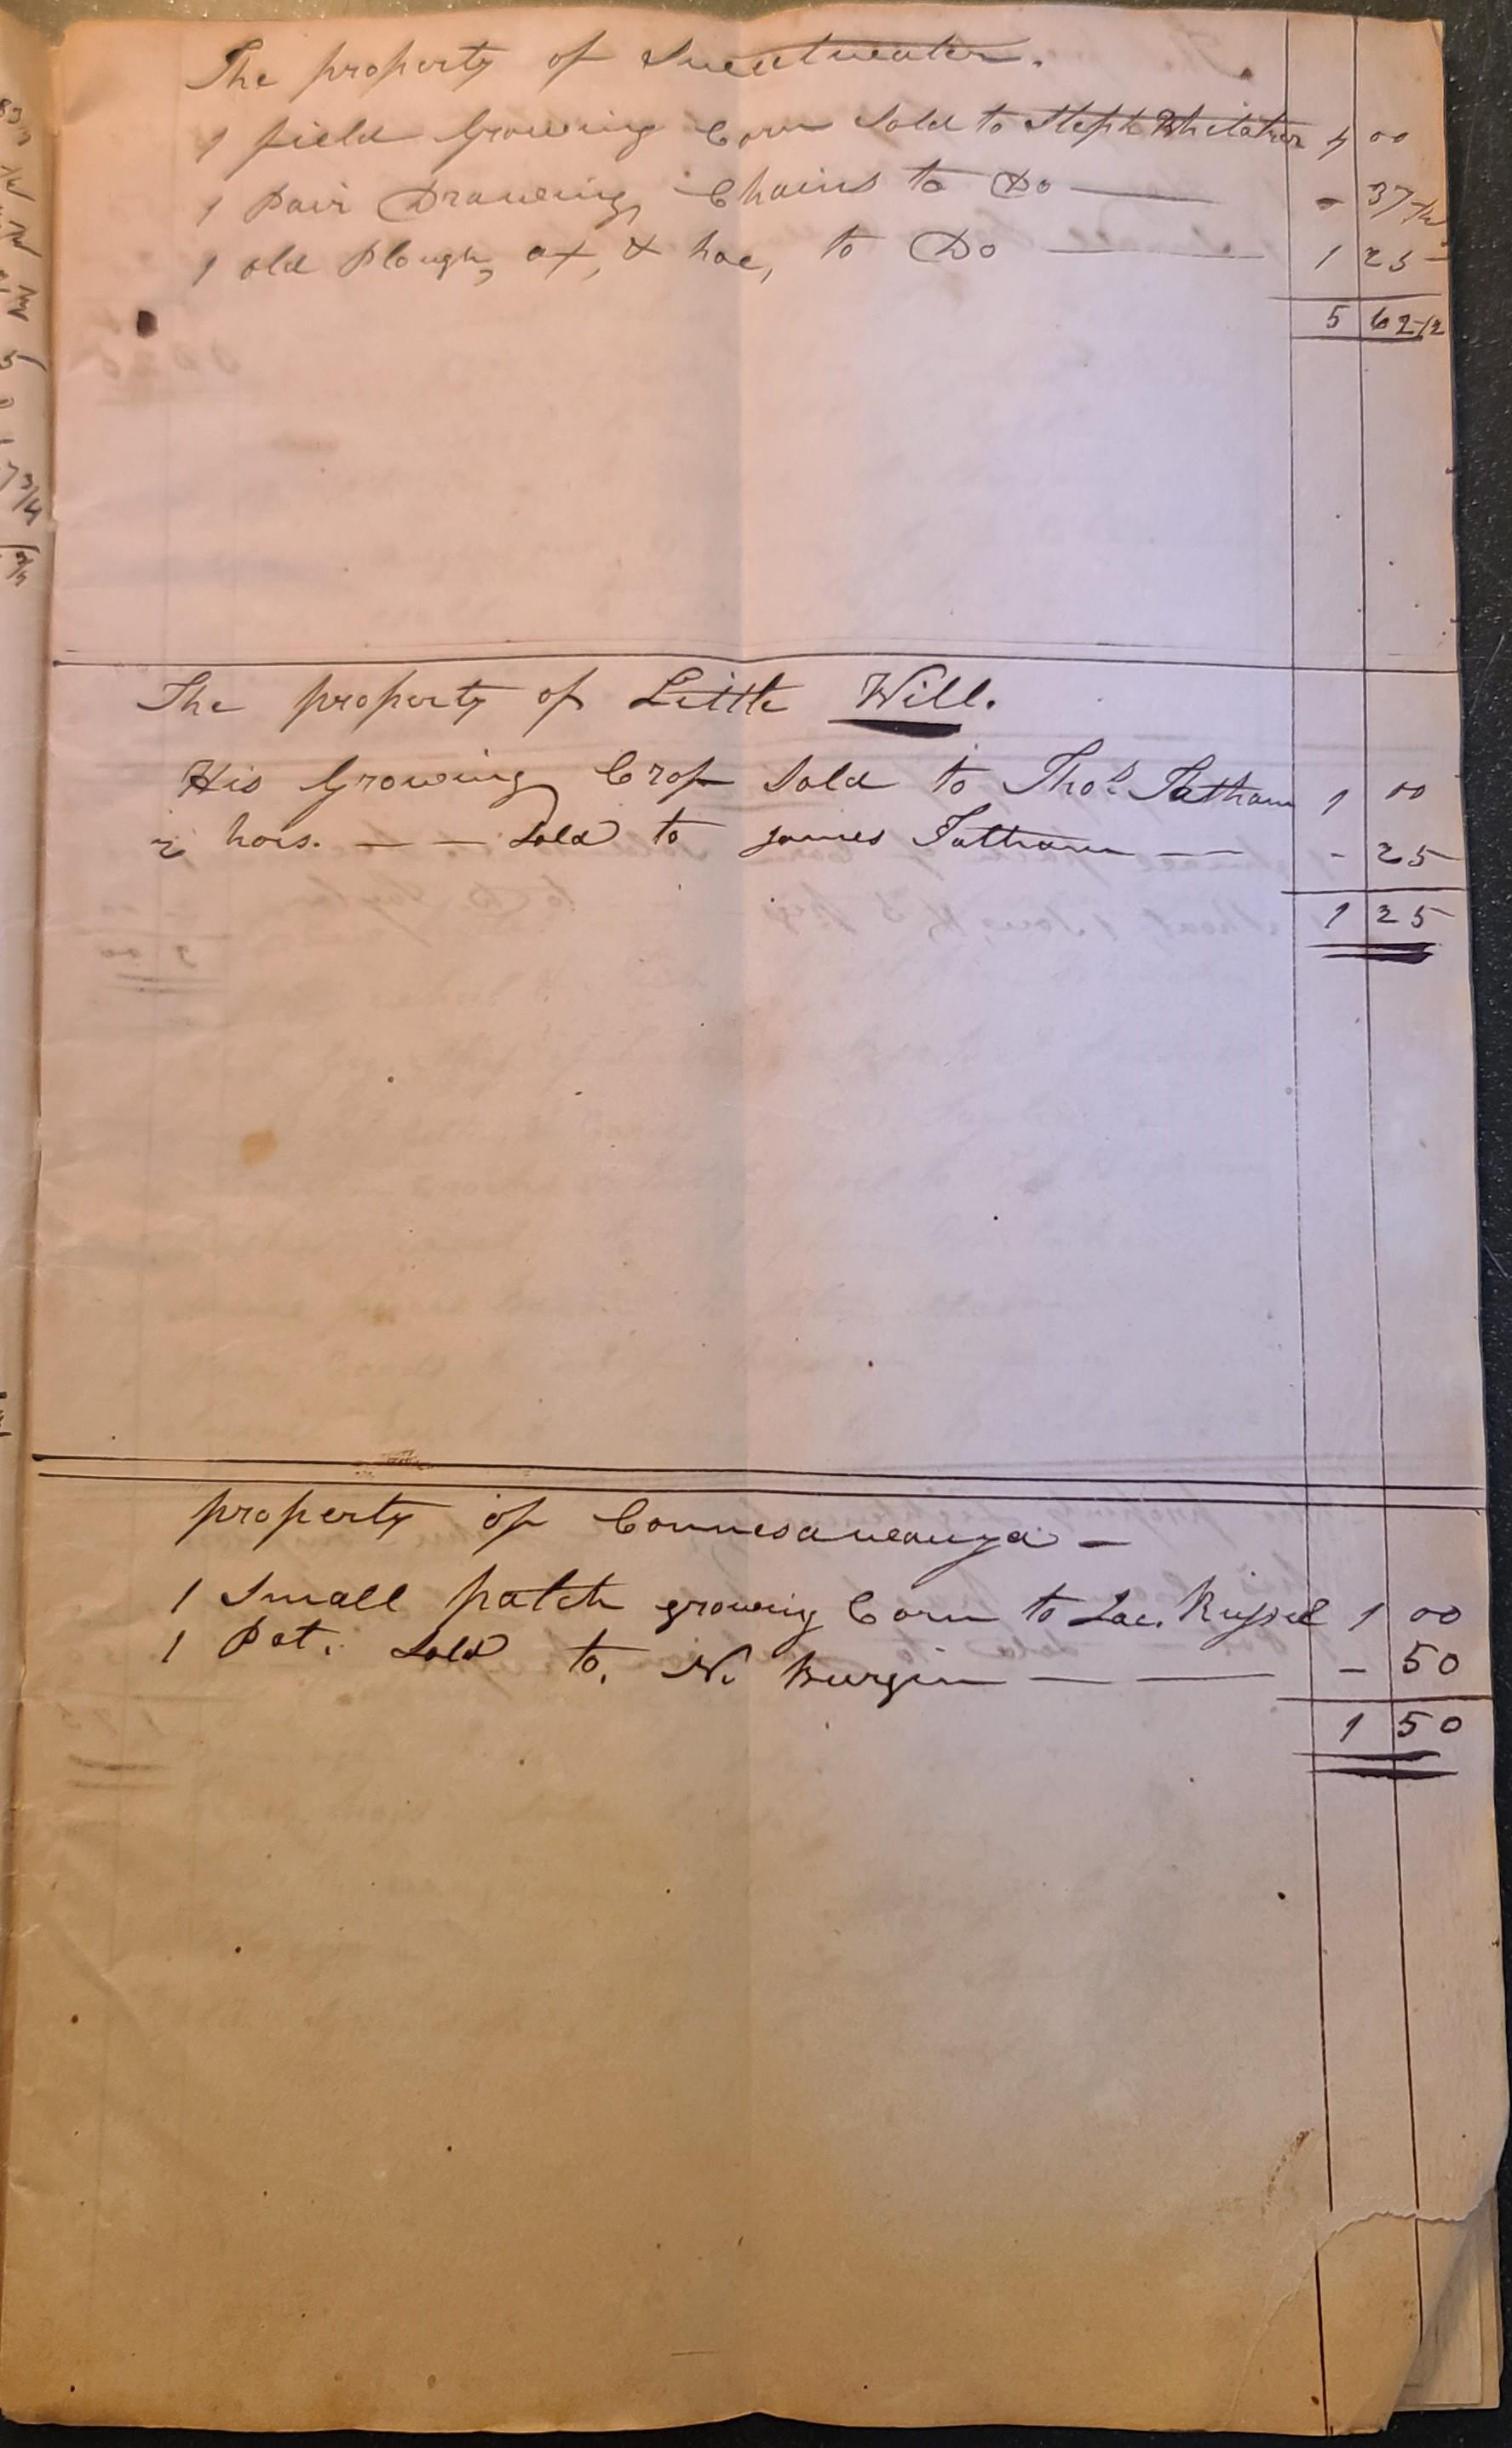 The property of Sweetwater.
1 field Growing Corn Sold to Steph Whitaker 4 00
1 Pair Drawing Chains to Do — - 37 1/2
1 old Plough, ax, & hoe, to Do — 1 25
5 62 1/2
The property of Little Will.
His Growing Crop Sold to Thos. Tatham 1 00
2 hois. — — Sold to James Tatham — - 25
1 25
property of Connesaweauga —
1 Small patch growing Corn to Zac. Russel 1 00
1 Pot. Sold to. N. Burgin — — - 50
1 50